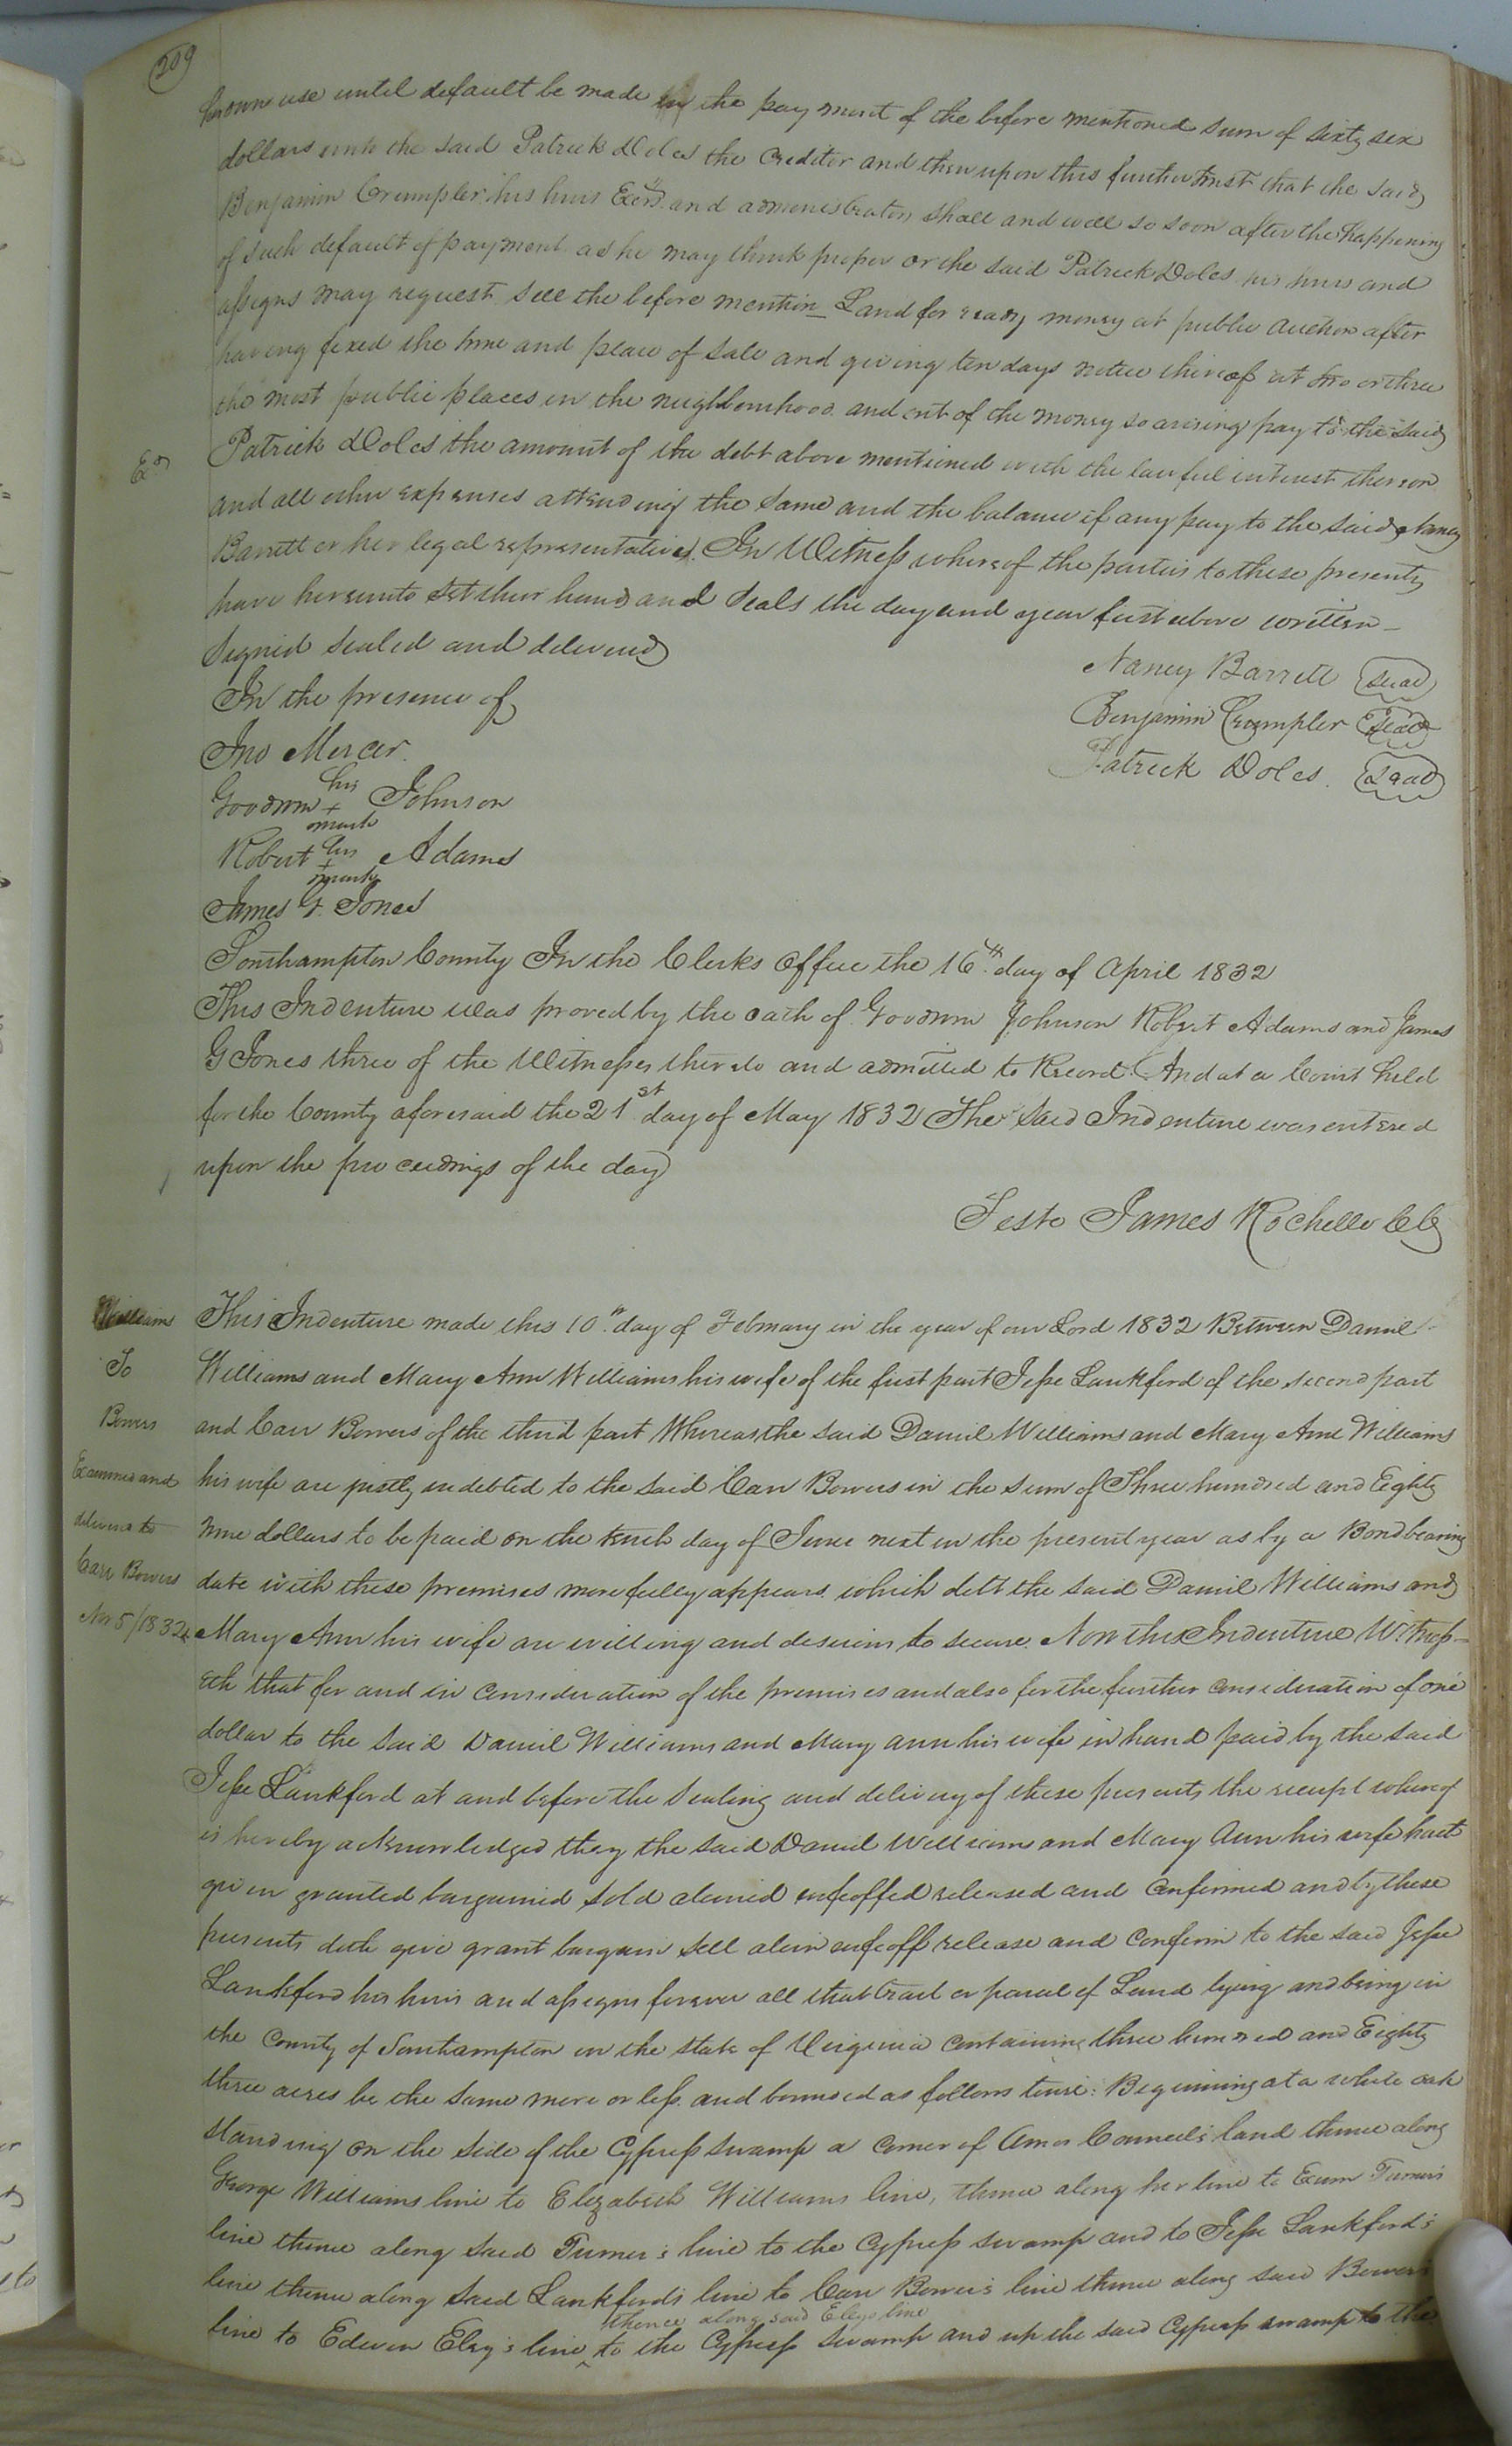 209
her own use until default be made in the payment of the before mentioned sum of sixty six
dollars unto the said Patrick Doles the Creditor and then upon this further trust that the said
Benjamin Crumpler his heirs Exors and administrators shall and will so soon after the happening
of such default of payment as he may think proper or the said Patrick Doles his heirs and
assigns may request sell the before mention_ Land for ready money at public auction after
having fixed the time and place of sale and giving ten days notice thereof at two or three
the most public places in the neighbourhood and out of the money so arising pay to the said
Patrick Doles the amount of the debt above mentioned with the lawful interest thereon
Ex^d
and all other expenses attending the same and the balance if any pay to the said Nancy
Barrett or her legal representatives. In Witness whereof the parties to these presents
have hereunto set their hands and seals the day and year first above written _
Signed sealed and delivered
In the presence of
Nancy Barrett (Seal)
Benjamin Crumpler (Seal)
Patrick Doles. (Seal)
Jno Mercer.
Goodwin his + mark Johnson
Robert his + mark Adams
James G. Jones
Southampton County In the Clerks office the 16th day of April 1832
This Indenture was proved by the oath of Goodwin Johnson Robert Adams and James
G Jones three of the Witnesses thereto and admitted to Record. And at a Court held
for the County aforesaid the 21st day of May 1832 The said Indenture was entered
upon the proceedings of the day
Teste James Rochelle CC
Williams
To
Bowers
Examined and
delivered to
Carr Bowers
Nov 5/1832
This Indenture made this 10th day of February in the year of our Lord 1832 Between Daniel
Williams and Mary Ann Williams his wife of the first part Jesse Lankford of the second part
and Carr Bowers of the third part Whereas the said Daniel Williams and Mary Ann Williams
his wife are justly indebted to the said Carr Bowers in the sum of Three hundred and Eighty
nine dollars to be paid on the tenth day of June next in the present year as by a Bond bearing
date with these premises more fully appears which debt the said Daniel Williams and
Mary Ann his wife are willing and desirous to secure. Now this Indenture Witness-
eth that for and in consideration of the premises and also for the further consideration of one
dollar to the said Daniel Williams and Mary Ann his wife in hand paid by the said
Jesse Lankford at and before the sealing and delivery of these presents the receipt whereof
is hereby acknowledged they the said Daniel Williams and Mary Ann his wife hath
given granted bargained sold aliened enfeoffed released and confirmed and by these
presents doth give grant bargain sell alien enfeoff release and confirm to the said Jesse
Lankford his heirs and assigns forever all that tract or parcel of Land lying and being in
the County of Southampton in the State of Virginia containing three hundred and Eighty
three acres be the same more or less and bounded as follows towit: Beginning at a white oak
standing on the side of the Cypress swamp a corner of Amos Council's land thence along
George Williams line to Elizabeth Williams line, thence along her line to Exum Turner's
line thence along said Turner's line to the Cypress swamp and to Jesse Lankford's
line thence along said Lankford's line to Carr Bowers's line thence along said Bowers's
thence along said Eley's line
line to Edwin Eley's line ^ to the Cypress swamp and up the said Cypress swamp to the